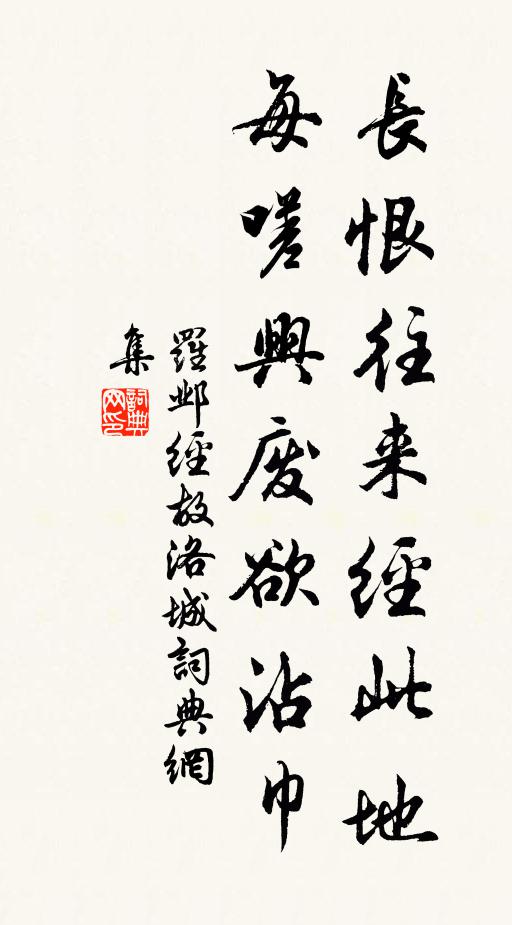 長恨往来經此地
每嗟興廢欲沾巾
羅邺經故洛城詞典網
集
詞典网印